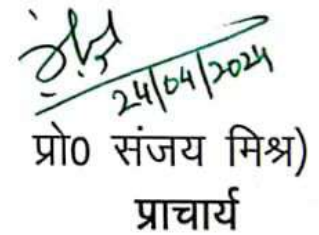 24/04/2024
प्रो0 संजय मिश्र)
प्राचार्य